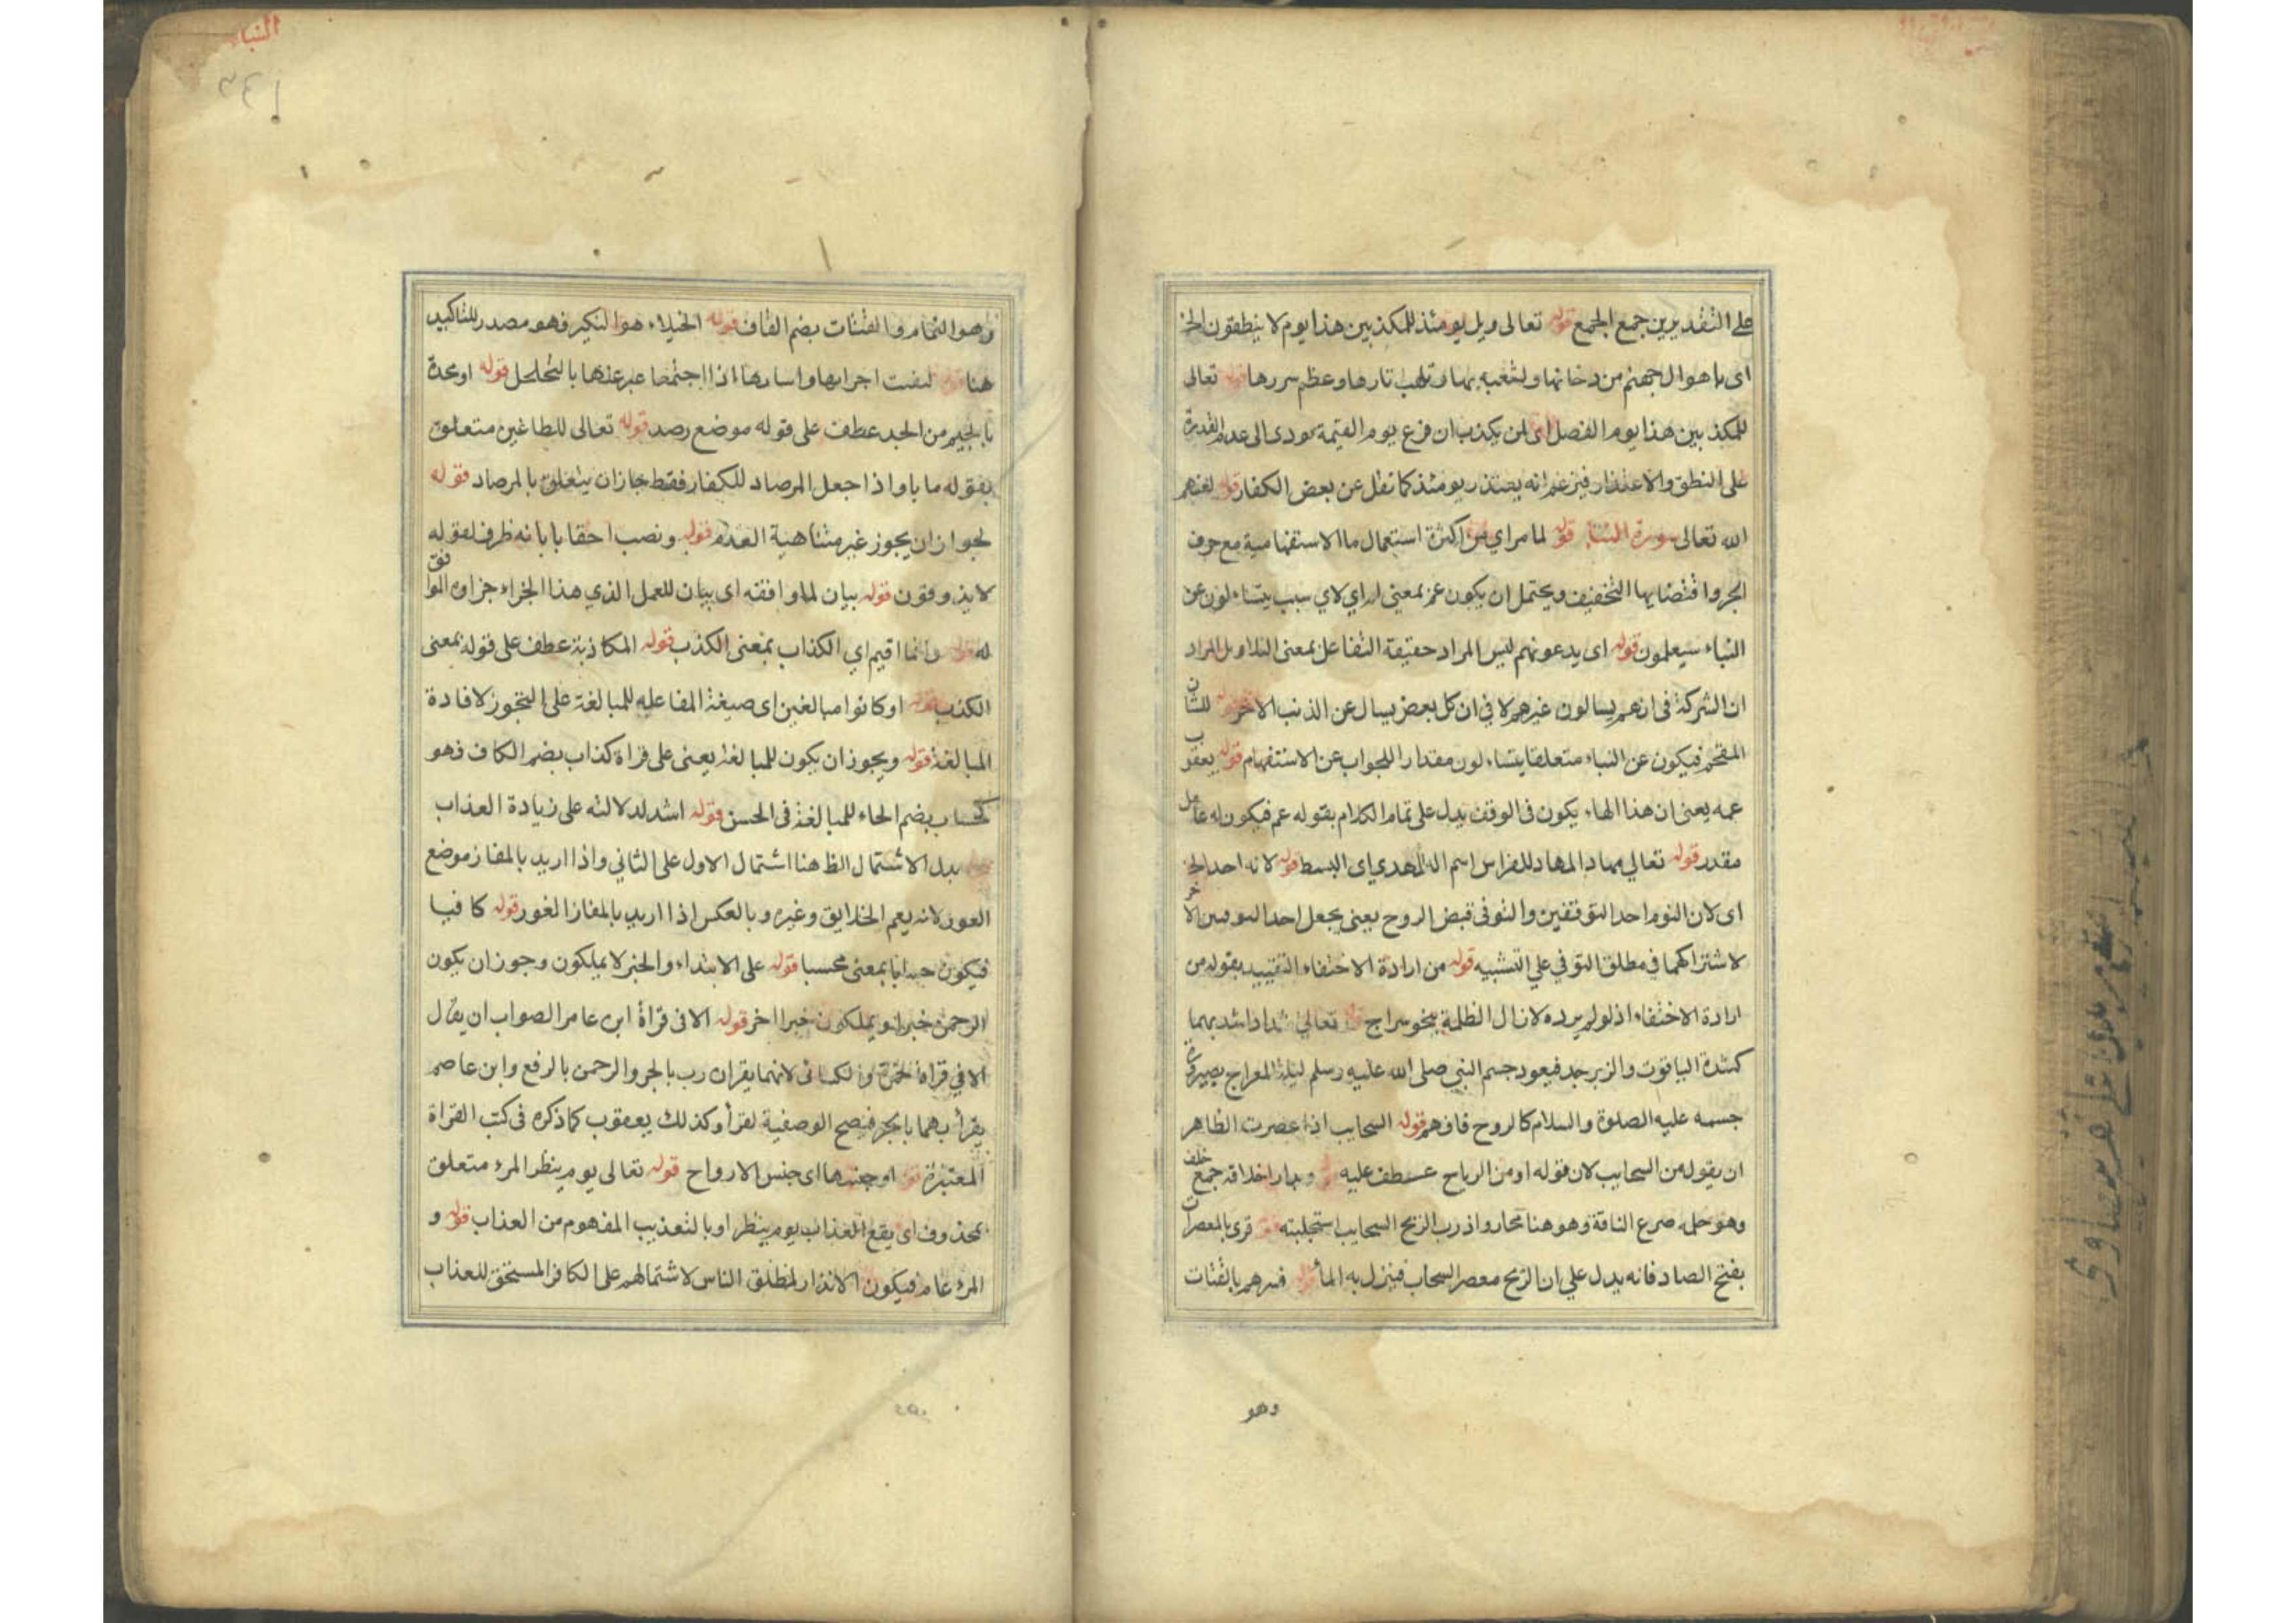 على التقديرين جمع الجمع قوله تعالى ويل يومئذ للمكذبين هذا يوم لا ينطقون الخ
اى باهوال جهنم من دخانها وتشعبه بها وتلهب نارها وعظم شررها قوله تعالى
للمكذبين هذا يوم الفصل لمن يكذب ان فزع يوم القيمة يودى الى عدم القدرة
على النطق والاعتذار فيزعم انه يعتذر يومئذ كما نقل عن بعض الكفار قوله لعنهم
الله تعالى سورة النبا قوله لما مر اي من اكثرة استعمال ما الاستفهامية مع حرف
الجر واقتضايها التخفيف ويحتمل ان يكون عم بمعنى لم اي لاي سبب يتساءلون عن
النباء سيعلمون قوله اى يدعونهم ليس المراد حقيقة التفاعل بمعنى بل المراد
ان الشركة فى انهم يسالون غيرهم لا في ان كل بعض يسال عن الذنب الاخر قوله للشان
المفخم فيكون عن النباء متعلقا يتساءلون مقدارا للجواب عن الاستفهام قوله يعقوب
عمه يعنى ان هذا الهاء يكون فى الوقف يدل على تمام الكلام بقوله عم فيكون له عامل
مقدر قوله تعالي مهادا المهاد للفراش اسم اى البسط قوله لانه احد الخ
اى لان النوم احد التوفيين والتوفى قبض الروح يعنى يجعل احد التوفيين الاخر
لاشتراكهما في مطلق التوفي علي التشبيه قوله من ارادة الاختفاء التقييد بقوله من
ارادة الاختفاء اذ لو لم يرده لازال الظلمة بنحو سراج قوله تعالى شدادا شد بهما
كشدة الياقوت والزبرجد فيعود جسم النبي صلى الله عليه وسلم ليلة المعراج بصيرورة
جسمه عليه الصلوة والسلام كالروح فافهم قوله السحايب اذا عصرت الظاهر
ان يقول من السحايب لان قوله او من الرياح عطف عليه قوله جمع خلف
وهو حلمه ضرع الناقة وهو هنا مجاز واذرب الريح السحايب استجلبته قوله قرى بالمعصرات
بفتح الصاد فانه يدل علي ان الريح معصر السحاب فينزل به الماء قوله فسرهم بالقتات
وهو
النباء
وهو النمام والقتات بضم القاف قوله الخيلاء هو التكبر فهو مصدر للتاكيد
هنا قوله اجزايها اذا اجتمعا عبر عنها بالتخلخل قوله او محدة
بالجيم من الجد عطف على قوله موضع رصد قوله تعالى للطاغين متعلق
بقوله مابا واذا جعل المرصاد للكفار فقط جاز ان يتعلق بالمرصاد قوله
لجواز ان يجوز غير متناهية العدم قوله ونصب احقابا بانه ظرف لقوله
لا يذوقون قوله بيان لما وافقه اى بيان للعمل الذي هذا الجزاء جزاوه الموافق
له قوله وانما اقيم اي الكذاب بمعنى الكذب قوله المكاذبة عطف على قوله بمعنى
الكذب قوله او كانوا مبالغين اى صيغة المفاعله للمبالغة على التجوز لافادة
المبالغة قوله ويجوز ان يكون للمبالغة يعنى على قراة كذاب بضم الكاف فهو
كحساب بضم الحاء للمبالغة فى الحسن قوله اشد لدلالته على زيادة العذاب
قوله بدل الاشتمال الظ هنا اشتمال الاول على الثاني واذا اريد بالمفاز موضع
الفوز لانه يعم الحدايق وغيره وبالعكس اذا اريد بالمفاز الفوز قوله كافيا
فيكون حسابا بمعنى محسبا قوله على الابتداء والخبر لا يملكون وجوز ان يكون
الرحمن خبرا ويملكون خبرا اخر قوله الا فى قراة ابن عامر الصواب ان يقال
الا في قراة حمزة والكسائى لانهما يقران رب بالجر والرحمن بالرفع وابن عاصم
يقرأ بهما بالجر فيصح الوصفية لقرأ وكذلك يعقوب كما ذكره فى كتب القراة
المعتبرة قوله او جنسها اى جنس الارواح قوله تعالى يوم ينظر المرء متعلق
بمحذوف اى يقع العذاب يوم ينظر او بالتعذيب المفهوم من العذاب قوله و
المرء عام فيكون الانذار لمطلق الناس لاشتمالهم على الكافر المستحق للعذاب